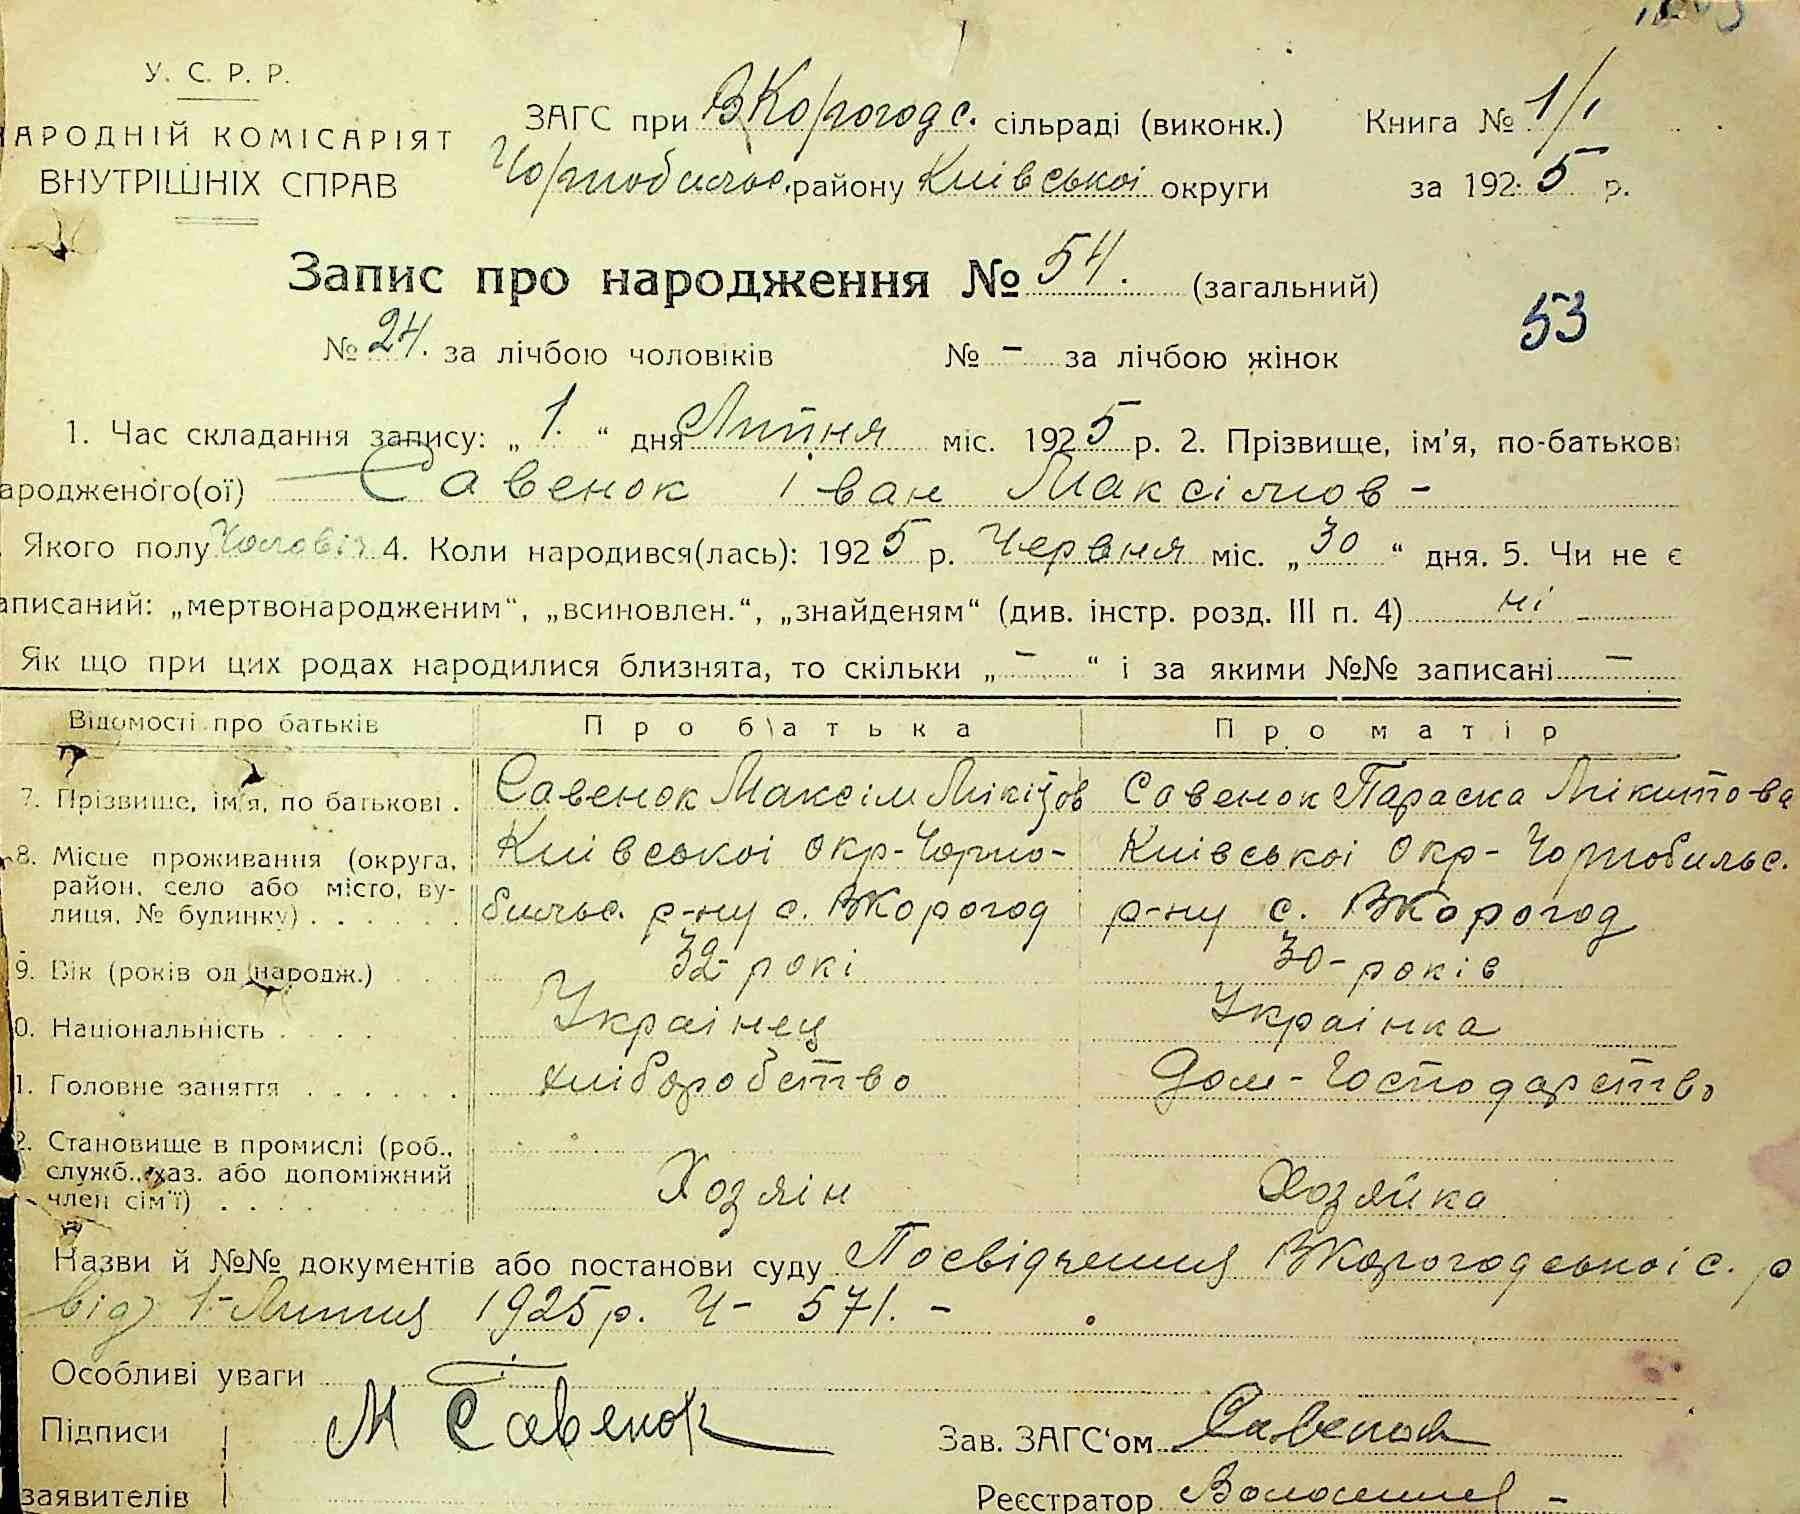 У. С. Р. Р.
АРОДНІЙ КОМІСАРІЯТ
ВНУТРІШНІХ СПРАВ
ЗАГС при ВКорогодс. сільраді (виконк.) Книга № 1/1
Чорнобильс. району Київської округи за 1925 р.
Запис про народження № 54. (загальний)
53
№ 24. за лічбою чоловіків № – за лічбою жінок
1. Час складання запису: „1.“ дня Липня міс. 1925 р. 2. Прізвище, ім'я, по-батькові
ародженого(ої) Савенок Іван Максімов –
Якого полу Чоловіч 4. Коли народився(лась): 1925 р. Червня міс. „30“ дня. 5. Чи не є
аписаний: „мертвонародженим“, „всиновлен.“, „знайденям“ (див. інстр. розд. III п. 4) ні –
Як що при цих родах народилися близнята, то скільки „–“ і за якими №№ записані –
Відомості про батьків Про батька Про матір
7. Прізвище, ім'я, по батькові . Савенок Максім Мікітов Савенок Параска Мікитова
8. Місце проживання (округа, Київської Окр-Чорно- Київської Окр-Чорнобильс.
район, село або місто, ву-
лиця, № будинку) . . . . . . бильс. р-ну с. ВКорогод р-ну с. ВКорогод
9. Вік (років од народж.) . . 32-рокі 30-років
0. Національність . . . . Українец Українка
1. Головне заняття . . . . . . хліборобство Дом-Господарство
2. Становище в промислі (роб.,
служб., хаз. або допоміжний Хозяін Хозяйка
член сім'ї) . . . .
Назви й №№ документів або постанови суду Посвідчення ВКорогодської с. р
від 1-Липня 1925 р. Ч- 571. –
Особливі уваги
Підписи М Савенок Зав. ЗАГС'ом Савенок
заявителів Реєстратор